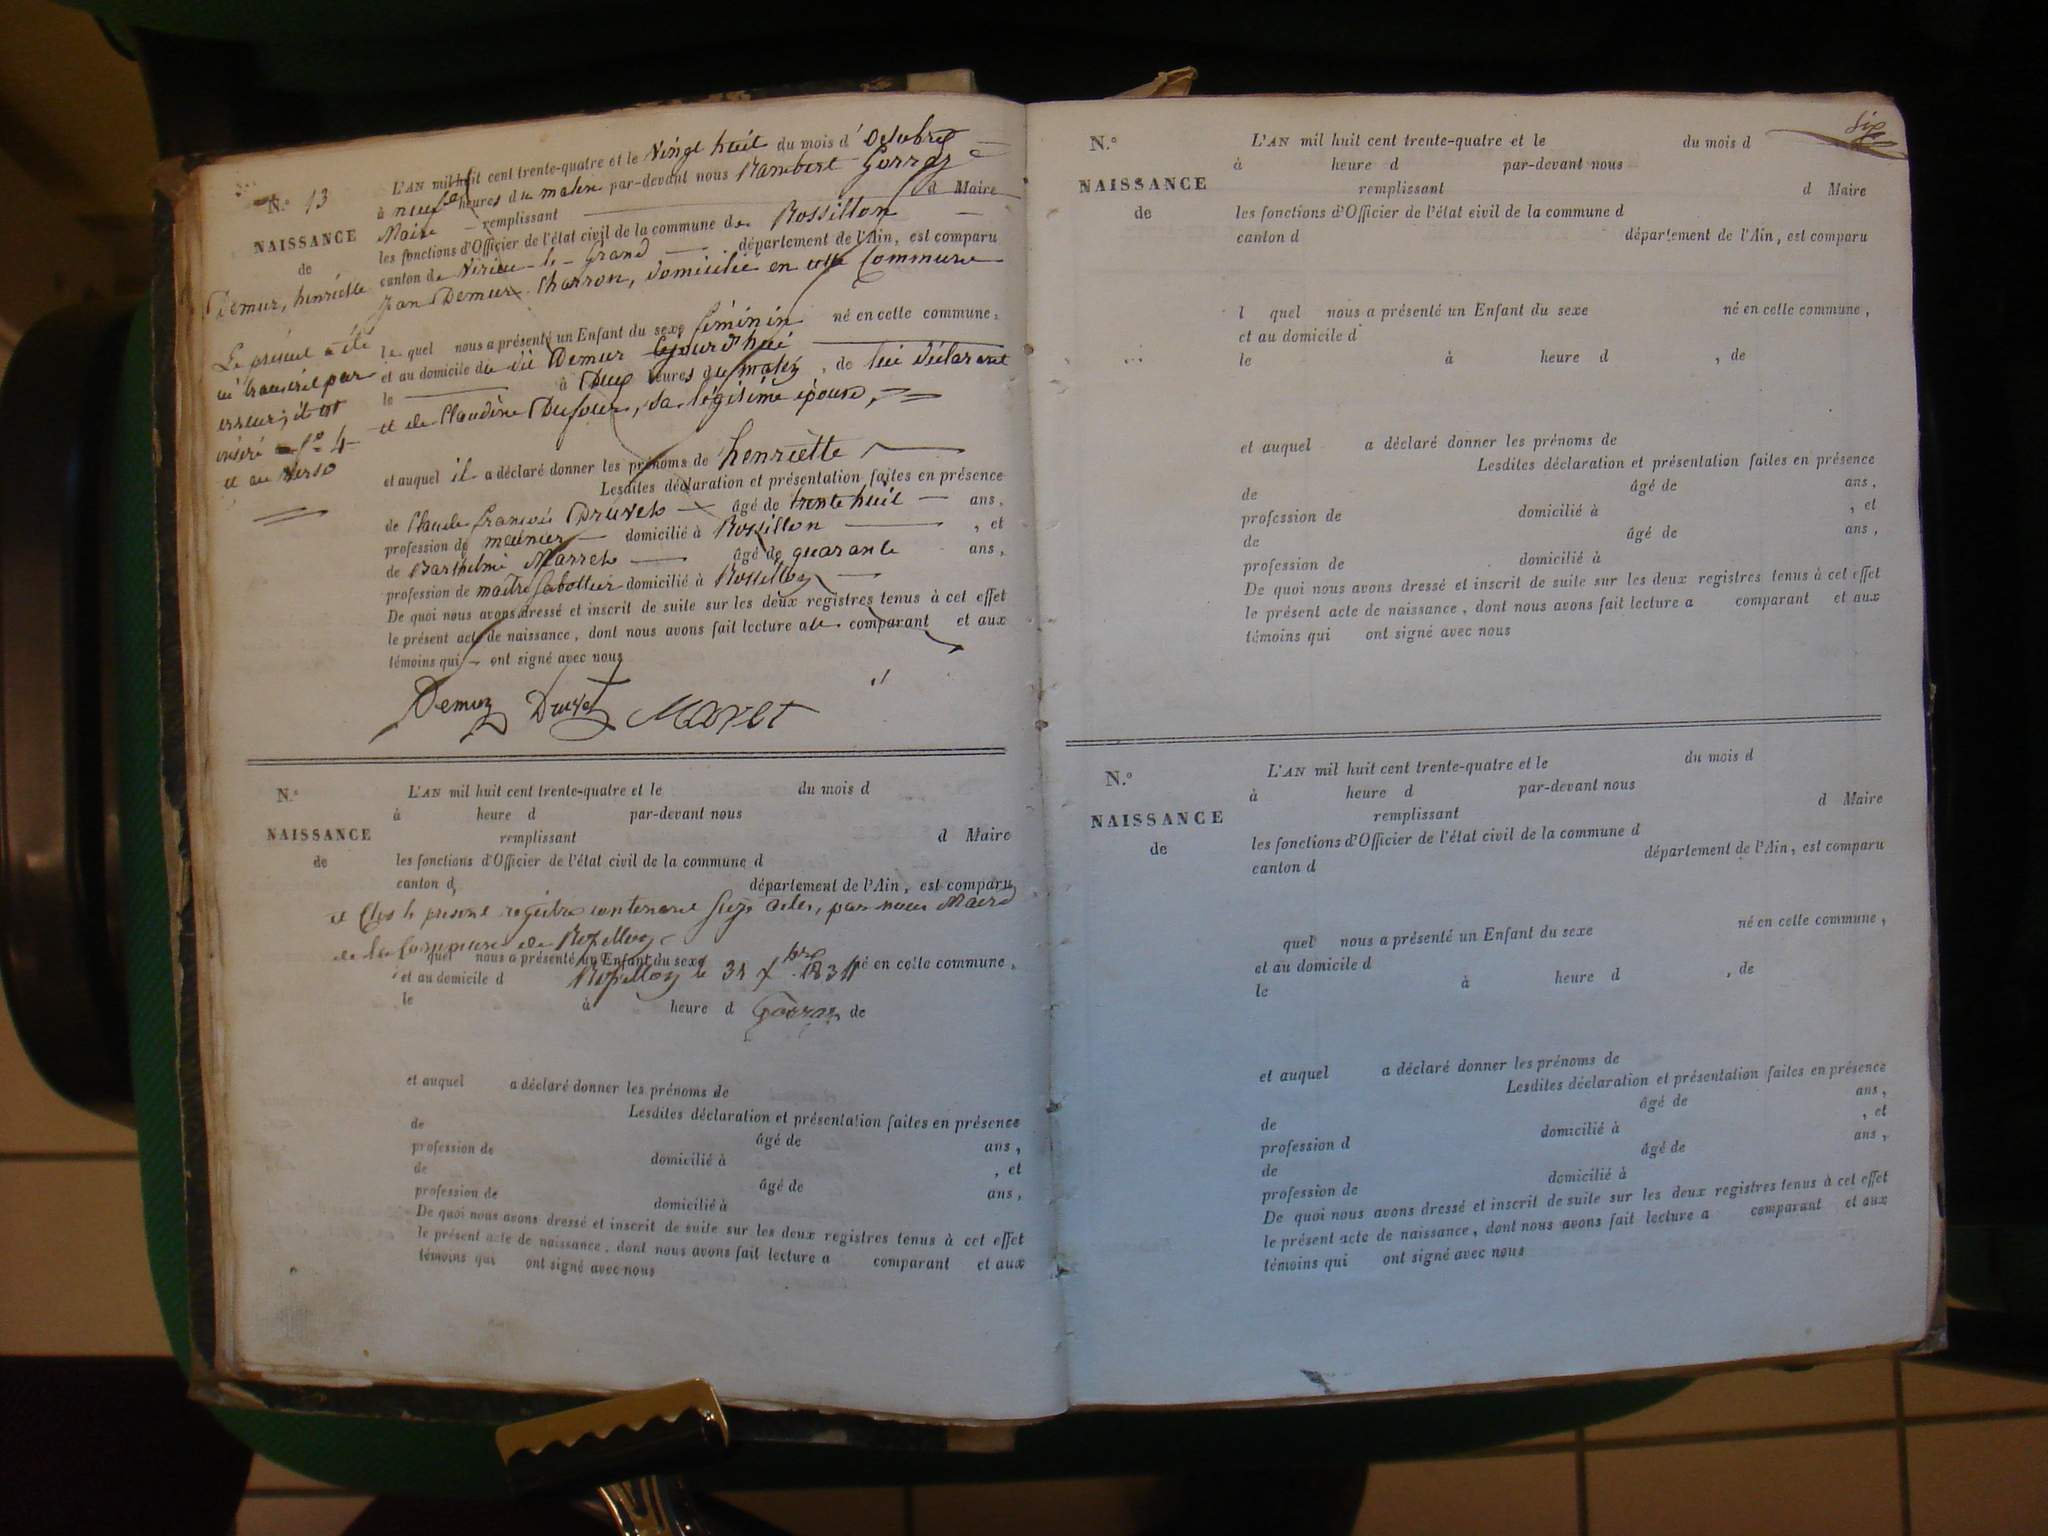 N.° 13
NAISSANCE
de
Demur, henriette
Le présent a été
ici transcrit par
erreur; il est
inséré f° 4
et au verso
L'AN mil huit cent trente-quatre et le Vingt huit du mois d'Octobre
à neuf heures du matin par-devant nous Rambert Gorraz
Maire remplissant d Maire
les fonctions d'Officier de l'état civil de la commune de Rossillon
canton de Virieu-le-Grand département de l'Ain, est comparu
Jean Demur Charron, domicilié en cette Commune
le quel nous a présenté un Enfant du sexe féminin né en cette commune,
et au domicile du dit Demur aujourd'hui
le à Deux heures du matin, de lui déclarant
et de Claudine Dufour, sa légitime épouse,
et auquel il a déclaré donner les prénoms de henriette
Lesdites déclaration et présentation faites en présence
de Claude françois Druvet âgé de trente huit ans,
profession de meunier domicilié à Rossillon, et
de Barthélmi Marret âgé de quarante ans,
profession de maitre sabottier domicilié à Rossillon
De quoi nous avons dressé et inscrit de suite sur les deux registres tenus à cet effet
le présent acte de naissance, dont nous avons fait lecture au comparant et aux
témoins qui ont signé avec nous
Demur Druvet Maret
N.°
NAISSANCE
de
L'AN mil huit cent trente-quatre et le du mois d
à heure d par-devant nous
remplissant d Maire
les fonctions d'Officier de l'état civil de la commune d
canton d département de l'Ain, est comparu
et Clos le présent registre contenant seize actes, par nous Maire
de la Commune de Rossillon
quel nous a présenté un Enfant du sexe né en cette commune,
et au domicile d Rossillon le 31 Xbre 1834
le à heure d Gorraz de
et auquel a déclaré donner les prénoms de
Lesdites déclaration et présentation faites en présence
de âgé de ans,
profession de domicilié à , et
de âgé de ans,
profession de domicilié à
De quoi nous avons dressé et inscrit de suite sur les deux registres tenus à cet effet
le présent acte de naissance, dont nous avons fait lecture a comparant et aux
témoins qui ont signé avec nous
six
N.°
NAISSANCE
de
L'AN mil huit cent trente-quatre et le du mois d
à heure d par-devant nous
remplissant d Maire
les fonctions d'Officier de l'état civil de la commune d
canton d département de l'Ain, est comparu
l quel nous a présenté un Enfant du sexe né en cette commune,
et au domicile d
le à heure d , de
et auquel a déclaré donner les prénoms de
Lesdites déclaration et présentation faites en présence
de âgé de ans,
profession de domicilié à , et
de âgé de ans,
profession de domicilié à
De quoi nous avons dressé et inscrit de suite sur les deux registres tenus à cet effet
le présent acte de naissance, dont nous avons fait lecture a comparant et aux
témoins qui ont signé avec nous
N.°
NAISSANCE
de
L'AN mil huit cent trente-quatre et le du mois d
à heure d par-devant nous
remplissant d Maire
les fonctions d'Officier de l'état civil de la commune d
canton d département de l'Ain, est comparu
quel nous a présenté un Enfant du sexe né en cette commune,
et au domicile d
le à heure d , de
et auquel a déclaré donner les prénoms de
Lesdites déclaration et présentation faites en présence
de âgé de ans,
profession d domicilié à , et
de âgé de ans,
profession de domicilié à
De quoi nous avons dressé et inscrit de suite sur les deux registres tenus à cet effet
le présent acte de naissance, dont nous avons fait lecture a comparant et aux
témoins qui ont signé avec nous